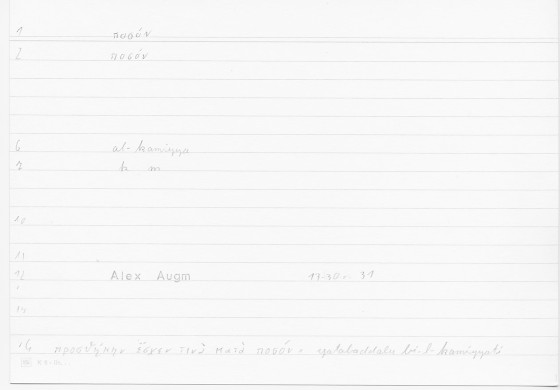 1 ποσόν
2 ποσόν
6 al-kamiyya
7 k m
10
11
12 Alex Augm 17.30 - 31
14
16 προσθήκην ἔσχεν τινὰ κατὰ ποσόν : yatabaddalu bi-l-kamiyyati